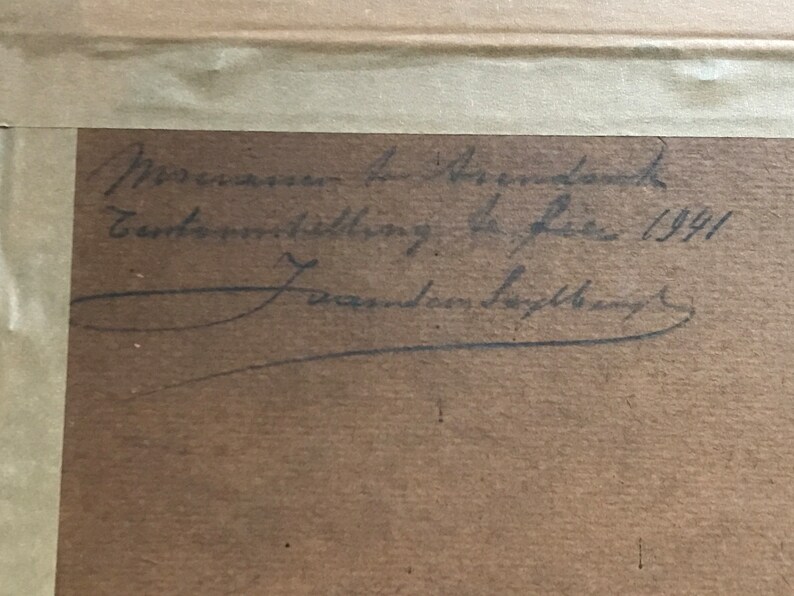 Moerassen te Arendonck
Tentoonstelling te Lier 1941
J vanden